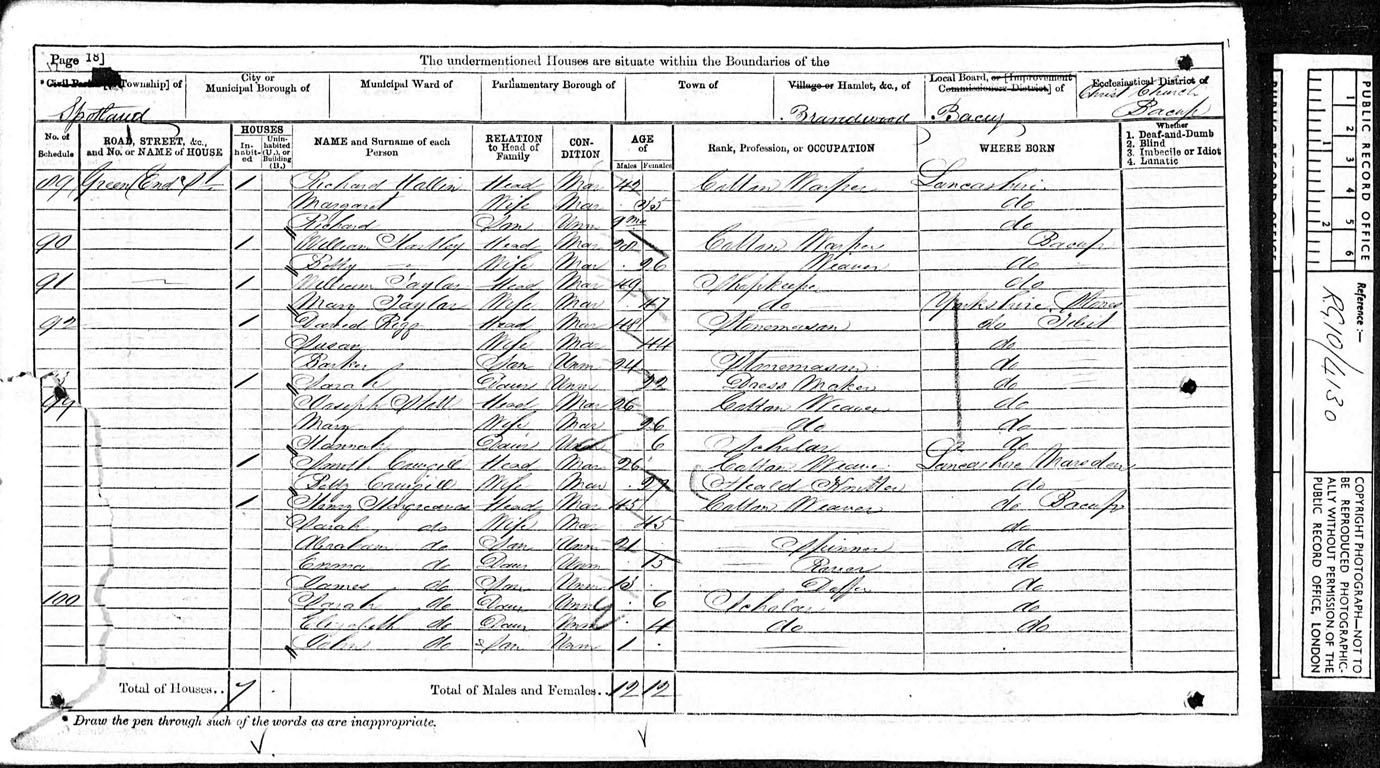 Page 18]
The undermentioned Houses are situate within the Boundaries of the
Civil Parish [or Township] of
City or Municipal Borough of
Municipal Ward of
Parliamentary Borough of
Town of
Village or Hamlet, &c., of
Local Board, or [Improvement Commissioners District] of
Ecclesiastical District of
Spotland
Brandwood
Bacup
Christ Church Bacup
No. of Schedule
ROAD, STREET, &c., and No. or NAME of HOUSE
HOUSES
Inhabited
Uninhabited (U.), or Building (B.)
NAME and Surname of each Person
RELATION to Head of Family
CONDITION
AGE of
Males
Females
Rank, Profession, or OCCUPATION
WHERE BORN
Whether
1. Deaf-and-Dumb
2. Blind
3. Imbecile or Idiot
4. Lunatic
89 Green End 1 Richard Head Mar 42 Cotton Warper Lancashire
Margaret Wife Mar 35 do
Richard Son Unm 9 mo do
90 1 William Hartley Head Mar 28 Cotton Warper Bacup
Betty Wife Mar 26 Weaver do
91 1 William Taylor Head Mar 49 Shopkeeper do
Mary Taylor Wife Mar 47 do Yorkshire
92 1 Head Mar 48 Stonemason do
Susan Wife Mar 44 do
Barker Son Unm 24 Stonemason do
1 Sarah Daur Unm 22 Dress Maker do
99 Joseph Head Mar 26 Cotton Weaver do
Mary Wife Mar 26 do do
Hannah Daur 6 Scholar do
1 Head Mar 26 Cotton Weaver Lancashire Marsden
Betty Wife Mar 27 Heald Knitter do
1 Head Mar 45 Cotton Weaver do Bacup
Sarah do Wife Mar 45 do
Abraham do Son Unm 21 Spinner do
Emma do Daur Unm 15 do
James do Son Unm 13 Doffer do
100 Sarah do Daur Unm 6 Scholar do
Elizabeth do Daur Unm 4 do do
John do Son Unm 1
Total of Houses.. 7
Total of Males and Females.. 12 12
* Draw the pen through such of the words as are inappropriate.
PUBLIC RECORD OFFICE
1 2 3 4 5 6
1 2
Reference :-
RG10/4130
COPYRIGHT PHOTOGRAPH—NOT TO
BE REPRODUCED PHOTOGRAPHIC-
ALLY WITHOUT PERMISSION OF THE
PUBLIC RECORD OFFICE, LONDON